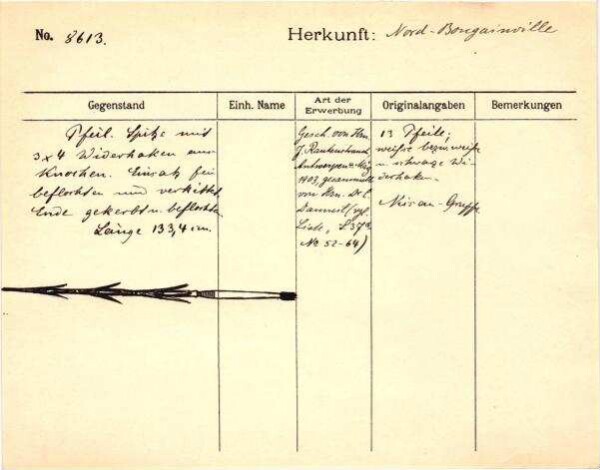 No. 8613.
Herkunft: Nord-Bougainville
Gegenstand
Einh. Name
Art der Erwerbung
Originalangaben
Bemerkungen
Pfeil. Spitze mit
3 x 4 Widerhaken aus
Knochen. Einsatz fein
beflochten und verkittet
Ende gekerbt u. beflochten
Länge 133,4 cm.
Gesch. von Hrn.
Antwerpen
1903, gesammelt
von Hrn. Dr. C
Danneil (vgl.
Liste, S. 37
No 52-64)
13 Pfeile;
weisse
u schwarze Wi-
derhaken.
Nissan-Gruppe